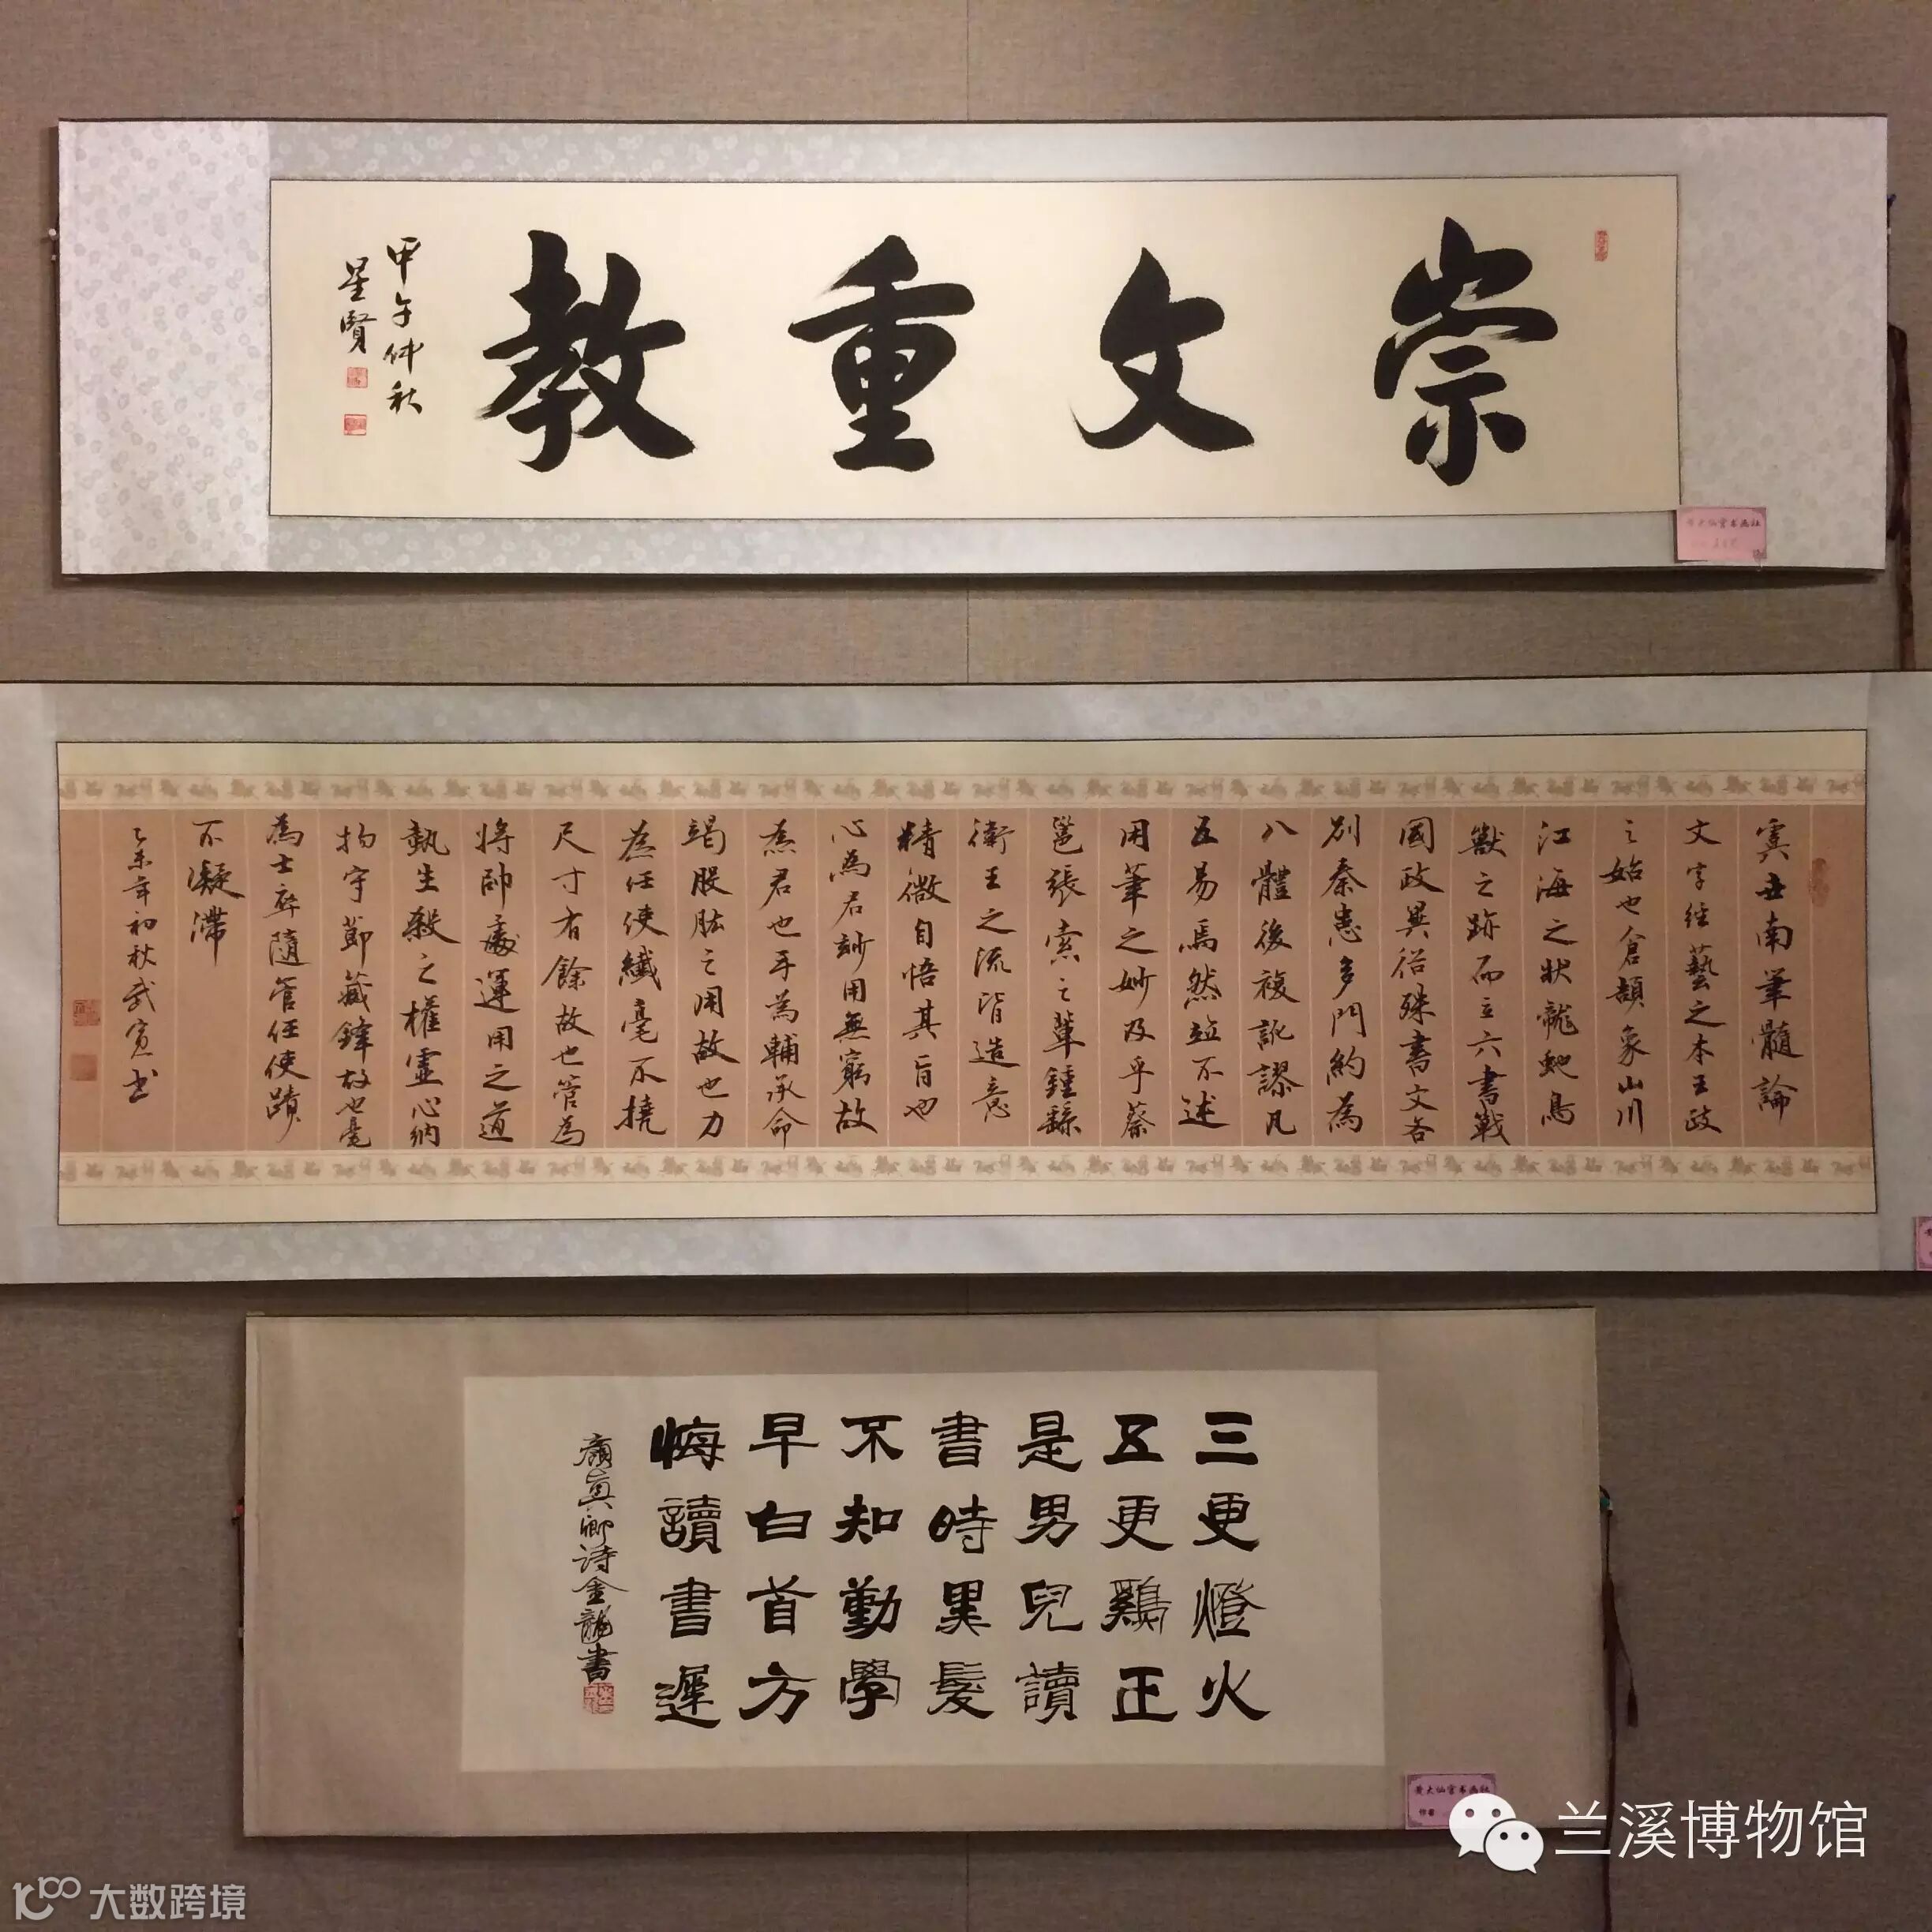 崇文重教
甲午仲秋
星賢
黄大仙宫书画社
虞世南筆髓論
文字經藝之本王政
之始也倉頡象山川
江海之狀龍蛇鳥
獸之跡而立六書戰
國政異俗殊書文各
別秦患多門約為
八體後複訛謬凡
五易焉然並不述
用筆之妙及乎蔡
邕張索之輩鍾繇
衛王之流皆造意
精微自悟其旨也
心為君妙用無窮故
為君也手為輔承命
竭股肱之用故也力
為任使纖毫不撓
尺寸有餘故也管為
將帥處運用之道
執生殺之權虛心納
物守節藏鋒故也毫
為士卒隨管任使蹟
不凝滯
乙未年初秋武寅书
三更燈火
五更鷄正
是男兒讀
書時黑髮
不知勤學
早白首方
悔讀書遲
顏真卿诗金龍書
黄大仙宫书画社
作者
兰溪博物馆
大数跨境